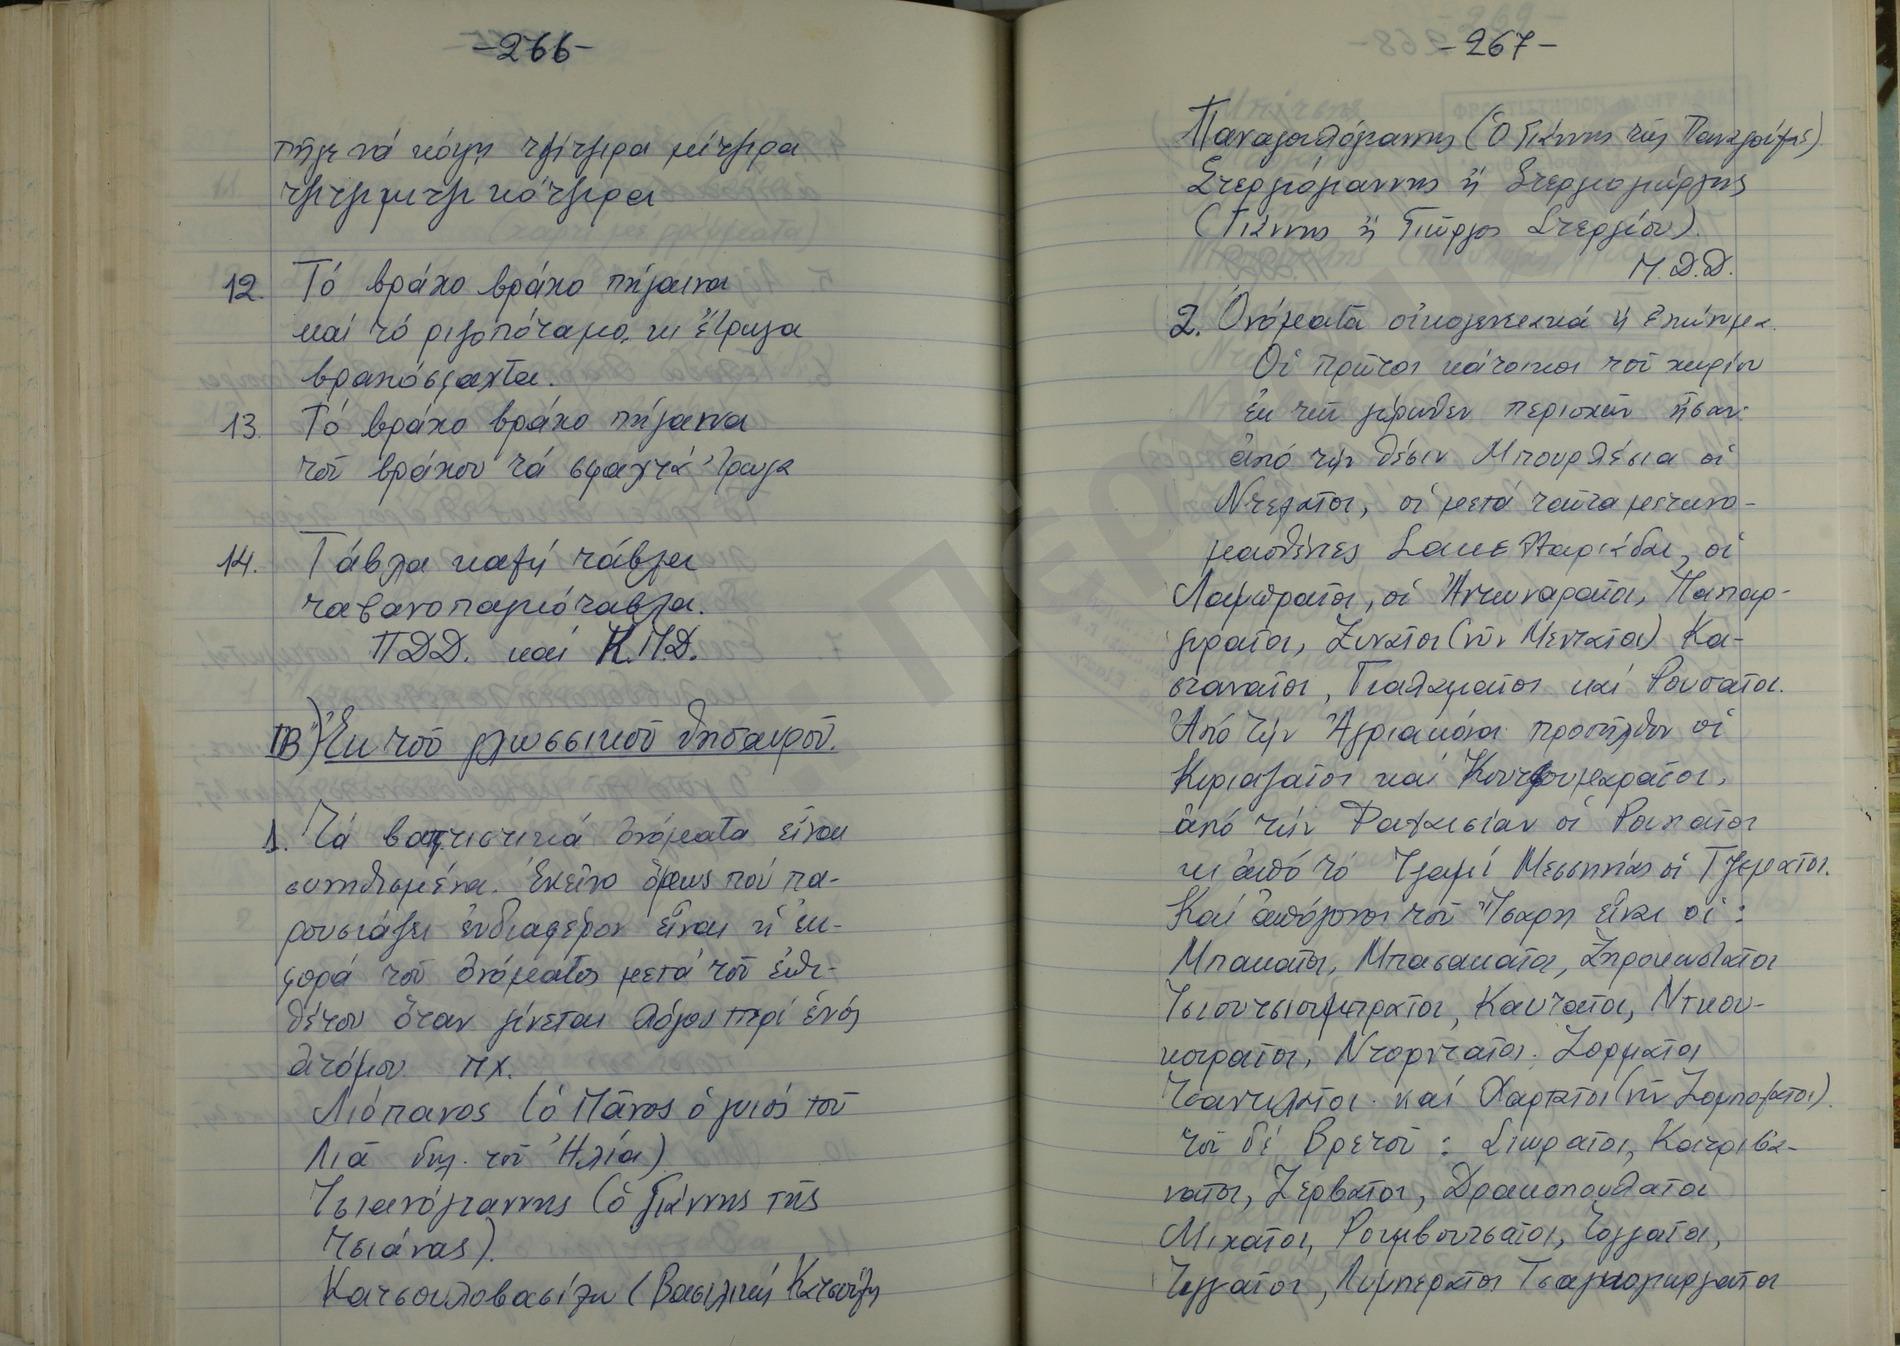 -266-
πῆγε νά κόψῃ τζίτζιρα μίτζιρα
τζιτζιμιτζι κότζιρα
12. Τό βράχο βράχο πήγαινα
καί τό ριζοπόταμο, κι ἔτρωγα
βρακόσφαχτα.
13. Τό βράχο βράχο πήγαινα
τοῦ βράχου τά σφαχτά 'τρωγα
14. Τάβλα καψή τάβλα
ταβανοπαλιόταβλα.
Π.Δ.Δ. καί Κ.Π.Δ.
ΙΒ) Ἐκ τοῦ γλωσσικοῦ θησαυροῦ.
1. Τά βαπτιστικά ὀνόματα εἶναι
συνηθισμένα. Ἐκεῖνο ὅμως πού πα-
ρουσιάζει ἐνδιαφέρον εἶναι ἡ ἐκ-
φορά τοῦ ὀνόματος μετά τοῦ ἐπι-
θέτου ὅταν γίνεται λόγος περί ἑνός
ἀτόμου πχ.
Λιόπανος (ὁ Πᾶνος ὁ γυιός τοῦ
Λιᾶ δηλ. τοῦ Ἠλία)
Τσιανόγιαννης (ὁ Γιάννης τῆς
Τσιάνας).
Κατσουλοβασίλω (Βασιλική Κατσούλη
-267-
Παναγουλόγιαννης (Ὁ Γιάννης τῆς Παναγούλας)
Στεργιόγιαννης ἤ Στεργιογιώργης
(Γιάννης ἤ Γιῶργος Στεργίου).
Π.Δ.Δ.
2. Ὀνόματα οἰκογενειακά ἤ Ἐπώνυμα.
Οἱ πρῶτοι κάτοικοι τοῦ χωρίου
ἐκ τῶν γύρωθεν περιοχῶν ἦσαν:
ἀπό τήν θέσιν Μπουρλέσια οἱ
Ντελαῖοι, οἱ μετά ταῦτα μετωνο-
μασθέντες Σακελλαριάδαι, οἱ
Λαμπραῖοι, οἱ Ἀντωναραῖοι, Παπαρ-
γυραῖοι, Ζυναῖοι (νῦν Μενταῖοι) Κα-
σταναῖοι, Γιαλαμαῖοι καί Ρουσαῖοι.
Ἀπό τήν Ἀγριακόνα προσῆλθον οἱ
Κυριαζαῖοι καί Κουτρουμπαραῖοι,
ἀπό τήν Φαλαισίαν οἱ Ραπαῖοι
κι ἀπό τό Τζαμί Μεσσηνίας οἱ Τζεμαῖοι.
Καί ἀπόγονοι τοῦ Ἴσαρη εἶναι οἱ:
Μπακαῖοι, Μπασακαῖοι, Ξηροκωσταῖοι
Τσιουτσιουμπραῖοι, Καυταῖοι, Ντκου-
κουραῖοι, Ντορνταῖοι, Ζορμαῖοι
Τσαντιλαῖοι καί Χαρταῖοι (νῦν Ζομπολαῖοι).
τοῦ δέ Βρετοῦ: Σιωραῖοι, Κατριβα-
ναῖοι, Ζερβαῖοι, Δρακοπουλαῖοι
Μιχαῖοι, Ρουμβουτσαῖοι, Τογγαῖοι,
Τεγγαῖοι, Λυμπεραῖοι Τσαγκογιωργαῖοι